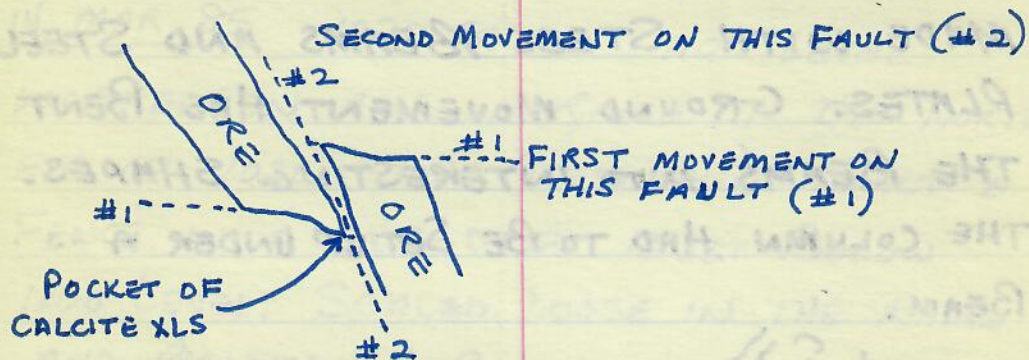 SECOND MOVEMENT ON THIS FAULT (#2)
#2
ORE
#1
FIRST MOVEMENT ON
THIS FAULT (#1)
#1
ORE
POCKET OF
CALCITE XLS
#2